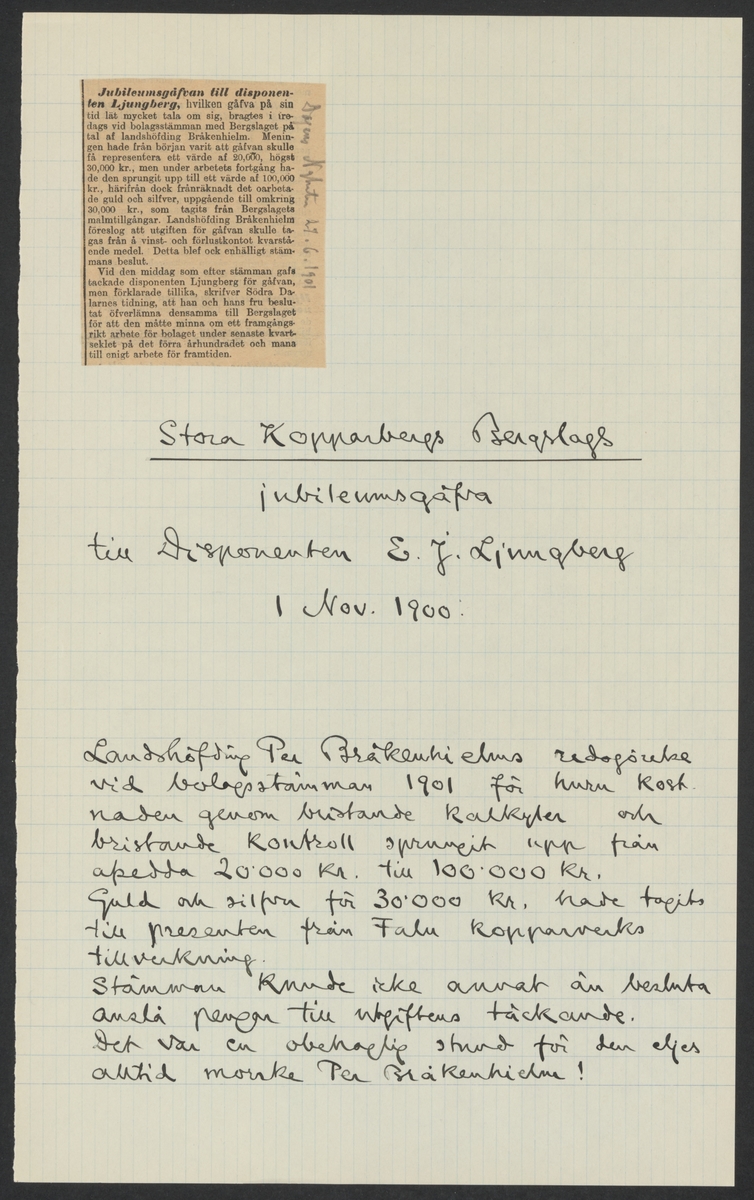 Jubileumsgåfvan till disponen-
ten Ljungberg, hvilken gåfva på sin
tid lät mycket tala om sig, bragtes i tre-
dags vid bolagsstämman med Bergslaget på
tal af landshöfding Bråkenhielm. Menin-
gen hade från början varit att gåfvan skulle
få representera ett värde af 20,000, högst
30,000 kr., men under arbetets fortgång ha-
de den sprungit upp till ett värde af 100,000
kr., härifrån dock frånräknadt det oarbeta-
de guld och silfver, uppgående till omkring
30,000 kr., som tagits från Bergslagets
malmtillgångar. Landshöfding Bråkenhielm
föreslog att utgiften för gåfvan skulle ta-
gas från å vinst- och förlustkontot kvarstå-
ende medel. Detta blef ock enhälligt stäm-
mans beslut.
Vid den middag som efter stämman gafs
tackade disponenten Ljungberg för gåfvan,
men förklarade tillika, skrifver Södra Da-
larnes tidning, att han och hans fru beslu-
tat öfverlämna densamma till Bergslaget
för att den måtte minna om ett framgångs-
rikt arbete för bolaget under senaste kvart-
seklet på det förra århundradet och mana
till enigt arbete för framtiden.
Dagens Nyheter 27.6.1901
Stora Kopparbergs Bergslags
jubileumsgåfva
till Disponenten E. J. Ljungberg
1 Nov. 1900:
Landshöfding Per Bråkenhielms redogörelse
vid bolagsstämman 1901 för huru kost-
naden genom bristande kalkyler och
bristande kontroll sprungit upp från
afsedda 20.000 Kr. till 100.000 Kr.
Guld och silfver för 30.000 Kr. hade tagits
till presenten från Falu kopparverks
tillverkning.
Stämman kunde icke annat än besluta
anslå pengar till utgiftens täckande.
Det var en obehaglig stund för den eljes
alltid morske Per Bråkenhielm!